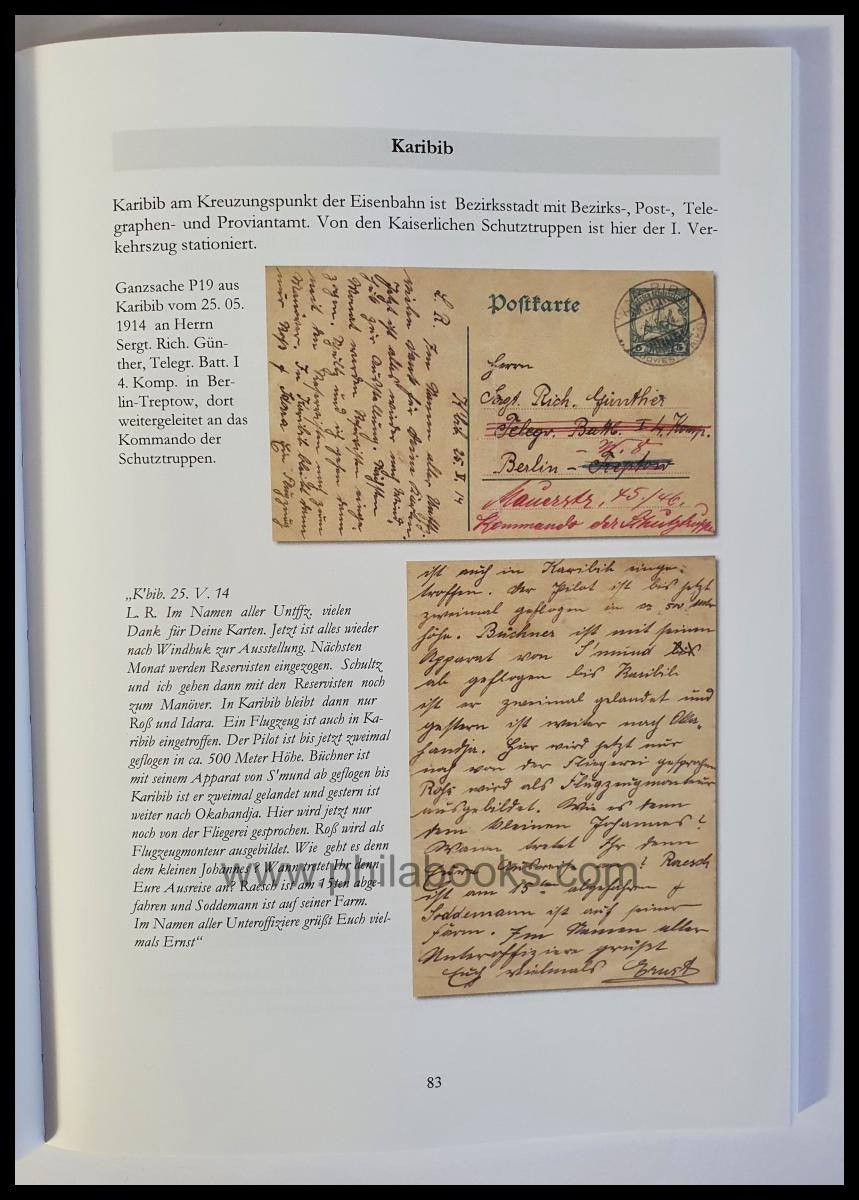 Karibib
Karibib am Kreuzungspunkt der Eisenbahn ist Bezirksstadt mit Bezirks-, Post-, Tele-
graphen- und Proviantamt. Von den Kaiserlichen Schutztruppen ist hier der I. Ver-
kehrszug stationiert.
Ganzsache P19 aus
Karibib vom 25. 05.
1914 an Herrn
Sergt. Rich. Gün-
ther, Telegr. Batt. I
4. Komp. in Ber-
lin-Treptow, dort
weitergeleitet an das
Kommando der
Schutztruppen.
K'bib 25. V. 14
L. R. Im Namen aller Untffz.
vielen Dank für Deine Karten.
Jetzt ist alles wieder nach Wind-
huk zur Ausstellung. Nächsten
Monat werden Reservisten einge-
zogen. Schultz und ich gehen dann
mit den Reservisten noch zum
Manöver. In Karibib bleibt dann
nur Roß
Postkarte
Herrn
Sergt. Rich. Günther
Telegr. Batt. I 4. Komp.
Berlin - Treptow
Mauerstr. 45/46.
Kommando der Schutztruppen
„K'bib. 25. V. 14
L. R. Im Namen aller Untffz. vielen
Dank für Deine Karten. Jetzt ist alles wieder
nach Windhuk zur Ausstellung. Nächsten
Monat werden Reservisten eingezogen. Schultz
und ich gehen dann mit den Reservisten noch
zum Manöver. In Karibib bleibt dann nur
Roß und Idara. Ein Flugzeug ist auch in Ka-
ribib eingetroffen. Der Pilot ist bis jetzt zweimal
geflogen in ca. 500 Meter Höhe. Büchner ist
mit seinem Apparat von S'mund ab geflogen bis
Karibib ist er zweimal gelandet und gestern ist
weiter nach Okahandja. Hier wird jetzt nur
noch von der Fliegerei gesprochen. Roß wird als
Flugzeugmonteur ausgebildet. Wie geht es denn
dem kleinen Johannes? Wann tretet Ihr denn
Eure Ausreise an? Raesch ist am 15ten abge-
fahren und Soddemann ist auf seiner Farm.
Im Namen aller Unteroffiziere grüßt Euch viel-
mals Ernst“
ist auch in Karibib einge-
troffen. Der Pilot ist bis jetzt
zweimal geflogen in ca 500 Meter
höhe. Büchner ist mit seinen
Apparat von S'mund
ab geflogen bis Karibib
ist er zweimal gelandet und
gestern ist weiter nach Oka-
handja. Hier wird jetzt nur
noch von der Fliegerei gesprochen
Roß wird als Flugzeugmonteur
ausgebildet. Wie es denn
dem kleinen Johannes?
Wann tretet Ihr denn
Eure Ausreise an? Raesch
ist am 15ten abgefahren
Soddemann ist auf seiner
Farm. Im Namen aller
Unteroffiziere grüßt
Euch vielmals Ernst
www.philabooks.com
83